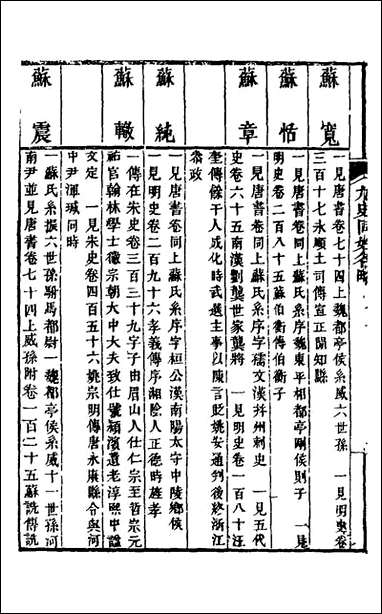 九史同姓名略
蘇寬
一見唐書卷七十四上魏都亭侯系威六世孫 一見明史卷
三百十七永順土司傳宣正間知縣
蘇恬
一見唐書卷同上蘇氏系序魏東平相都亭剛侯則子 一見
明史卷二百八十五蘇伯衡傳伯衡子
蘇章
一見唐書卷同上蘇氏系序字孺文漢幷州刺史 一見五代
史卷六十五南漢劉龑世家龑將 一見明史卷一百八十汪
奎傳餘干人成化時武選主事以陳言貶姚安通判後終浙江
叅政
蘇純
一見唐書卷同上蘇氏系序字桓公漢南陽太守中陵鄉侯
一見明史卷二百九十六孝義傳序湘陰人正德時旌孝
蘇轍
一傳在宋史卷三百三十九字子由眉山人仕仁宗至哲宗元
祐官翰林學士徽宗朝大中大夫致仕號潁濱遺老淳熙中諡
文定 一見宋史卷四百五十六姚宗明傳唐永康縣令與河
中尹渾瑊同時
蘇震
一蘇氏系振六世孫駙馬都尉一魏都亭侯系威十一世孫河
南尹並見唐書卷七十四上威孫附卷一百二十五蘇詵傳詵